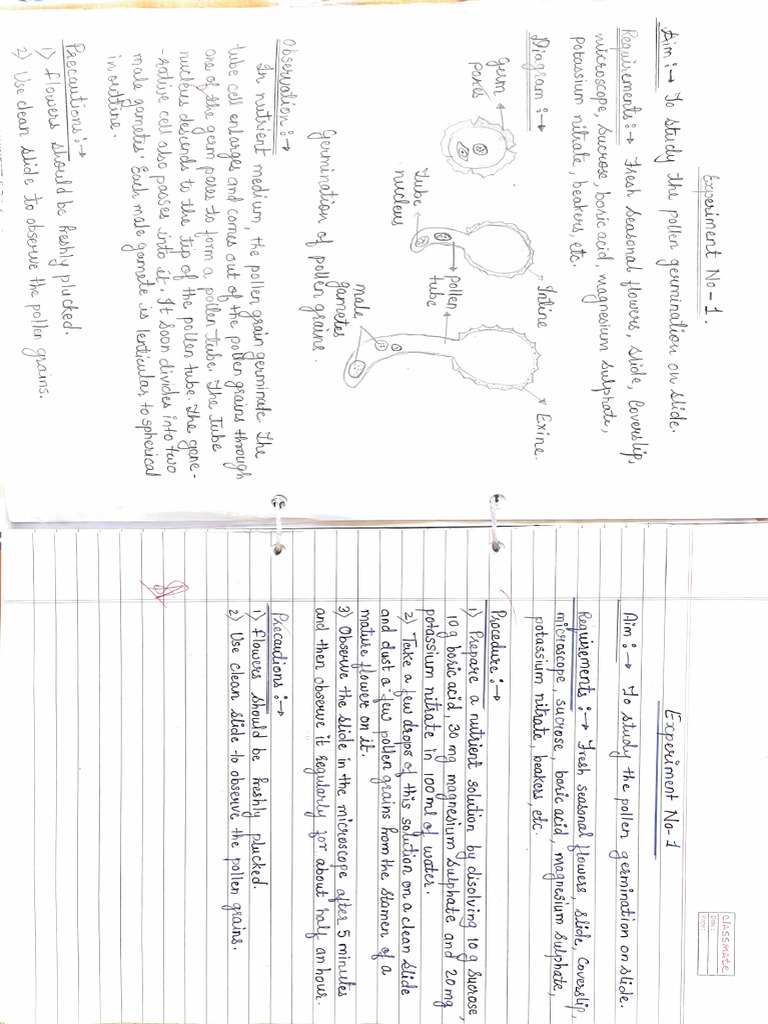 Experiment No-1.
Aim:→ To study the pollen germination on slide.
Requirements:→ Fresh seasonal flowers, slide, Coverslip,
microscope, sucrose, boric acid, magnesium sulphate,
potassium nitrate, beakers, etc.
Diagram:→
Germ
pores
Tube
nucleus
pollen
tube
Intine
Exine.
male
gametes
Germination of pollen grains.
Observation:→
In nutrient medium, the pollen grain germinate. The
tube cell enlarges and comes out of the pollen grains through
one of the germ pores to form a pollen tube. The Tube
nucleus descends to the tip of the pollen tube. The gene-
-rative cell also passes into it. It soon divides into two
male gametes. Each male gamete is lenticular to spherical
in outline.
Precautions:→
1) flowers should be freshly plucked.
2) Use clean slide to observe the pollen grains.
classmate
Date:
Page:
Experiment No-1
Aim:→ To study the pollen germination on slide.
Requirements:→ Fresh seasonal flowers, slide, Coverslip,
microscope, sucrose, boric acid, magnesium sulphate,
potassium nitrate, beakers, etc.
Procedure:→
1) Prepare a nutrient solution by disolving 10 g sucrose,
10 g boric acid, 30 mg magnesium sulphate and 20 mg
potassium nitrate in 100 ml of water.
2) Take a few drops of this solution on a clean slide
and dust a few pollen grains from the stamen of a
mature flower on it.
3) Observe the slide in the microscope after 5 minutes
and then observe it regularly for about half an hour.
Precautions:→
1) flowers should be freshly plucked.
2) Use clean slide to observe the pollen grains.